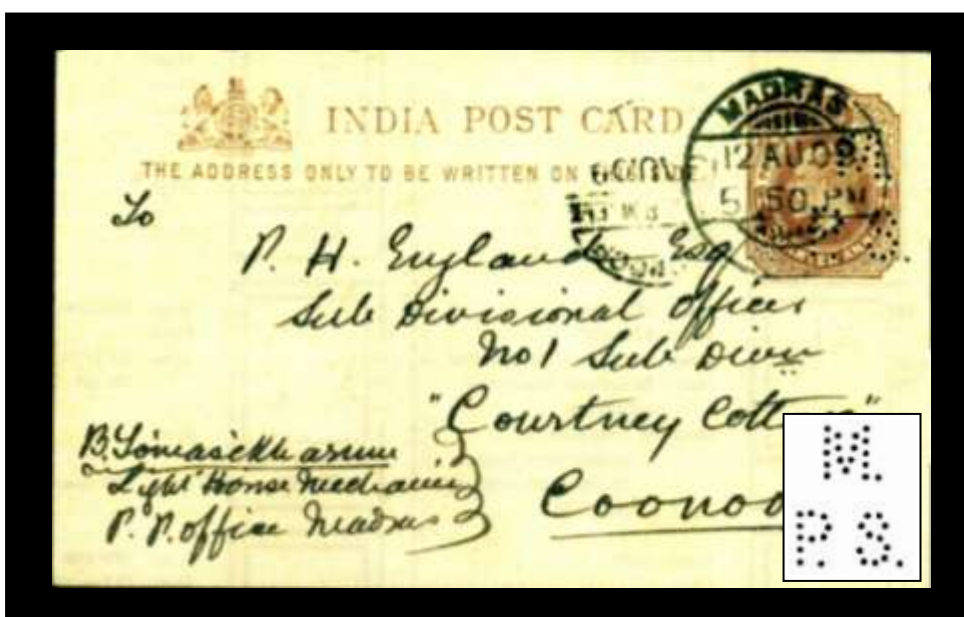 INDIA POST CARD
THE ADDRESS ONLY TO BE WRITTEN ON SIDE
MADRAS
12 AU 09
5 50 PM
To
P. H. England Esq
Sub Divisional Officer
No 1 Sub Divn
"Courtney
B.
Light House Mechanic
P. P. office Madras
M.
P. S.